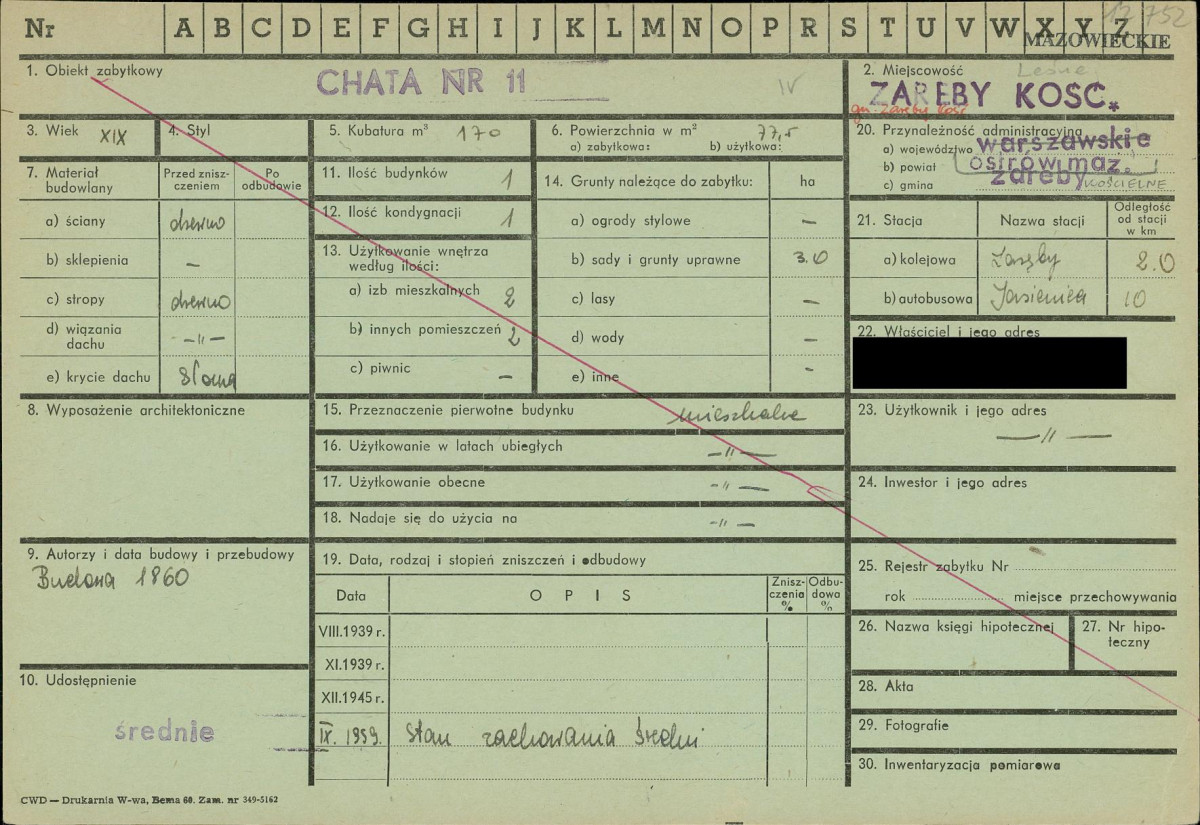 Nr A B C D E F G H I J K L M N O P R S T U V W X Y Z
12 752
MAZOWIECKIE
1. Obiekt zabytkowy
CHATA NR 11
IV
2. Miejscowość
Leśne
ZARĘBY KOSC.
gm. Zaręby Kość
3. Wiek XIX
4. Styl
5. Kubatura m³ 170
6. Powierzchnia w m² 77,5
a) zabytkowa: b) użytkowa:
20. Przynależność administracyjna
a) województwo warszawskie
b) powiat ostrów maz.
c) gmina zaręby KOŚCIELNE
7. Materiał budowlany
Przed znisz-
czeniem
Po
odbudowie
a) ściany drewno
b) sklepienia —
c) stropy drewno
d) wiązania
dachu —"—
e) krycie dachu słoma
11. Ilość budynków 1
12. Ilość kondygnacji 1
13. Użytkowanie wnętrza
według ilości:
a) izb mieszkalnych 2
b) innych pomieszczeń 2
c) piwnic —
14. Grunty należące do zabytku: ha
a) ogrody stylowe —
b) sady i grunty uprawne 3.0
c) lasy —
d) wody —
e) inne -
21. Stacja
Nazwa stacji
Odległość
od stacji
w km
a) kolejowa 2.0
b) autobusowa Jasienica 10
22. Właściciel i jego adres
8. Wyposażenie architektoniczne
15. Przeznaczenie pierwotne budynku mieszkalne
16. Użytkowanie w latach ubiegłych —"—
17. Użytkowanie obecne -"—
18. Nadaje się do użycia na -"—
23. Użytkownik i jego adres
—"—
24. Inwestor i jego adres
9. Autorzy i data budowy i przebudowy
Budowa 1860
19. Data, rodzaj i stopień zniszczeń i odbudowy
Data
OPIS
Znisz-
czenia
%
Odbu-
dowa
%
VIII.1939 r.
XI.1939 r.
XII.1945 r.
IX. 1959. Stan zachowania średni
25. Rejestr zabytku Nr
rok miejsce przechowywania
26. Nazwa księgi hipotecznej
27. Nr hipo-
teczny
10. Udostępnienie
średnie
28. Akta
29. Fotografie
30. Inwentaryzacja pomiarowa
CWD — Drukarnia W-wa, Bema 60. Zam. nr 349-5162